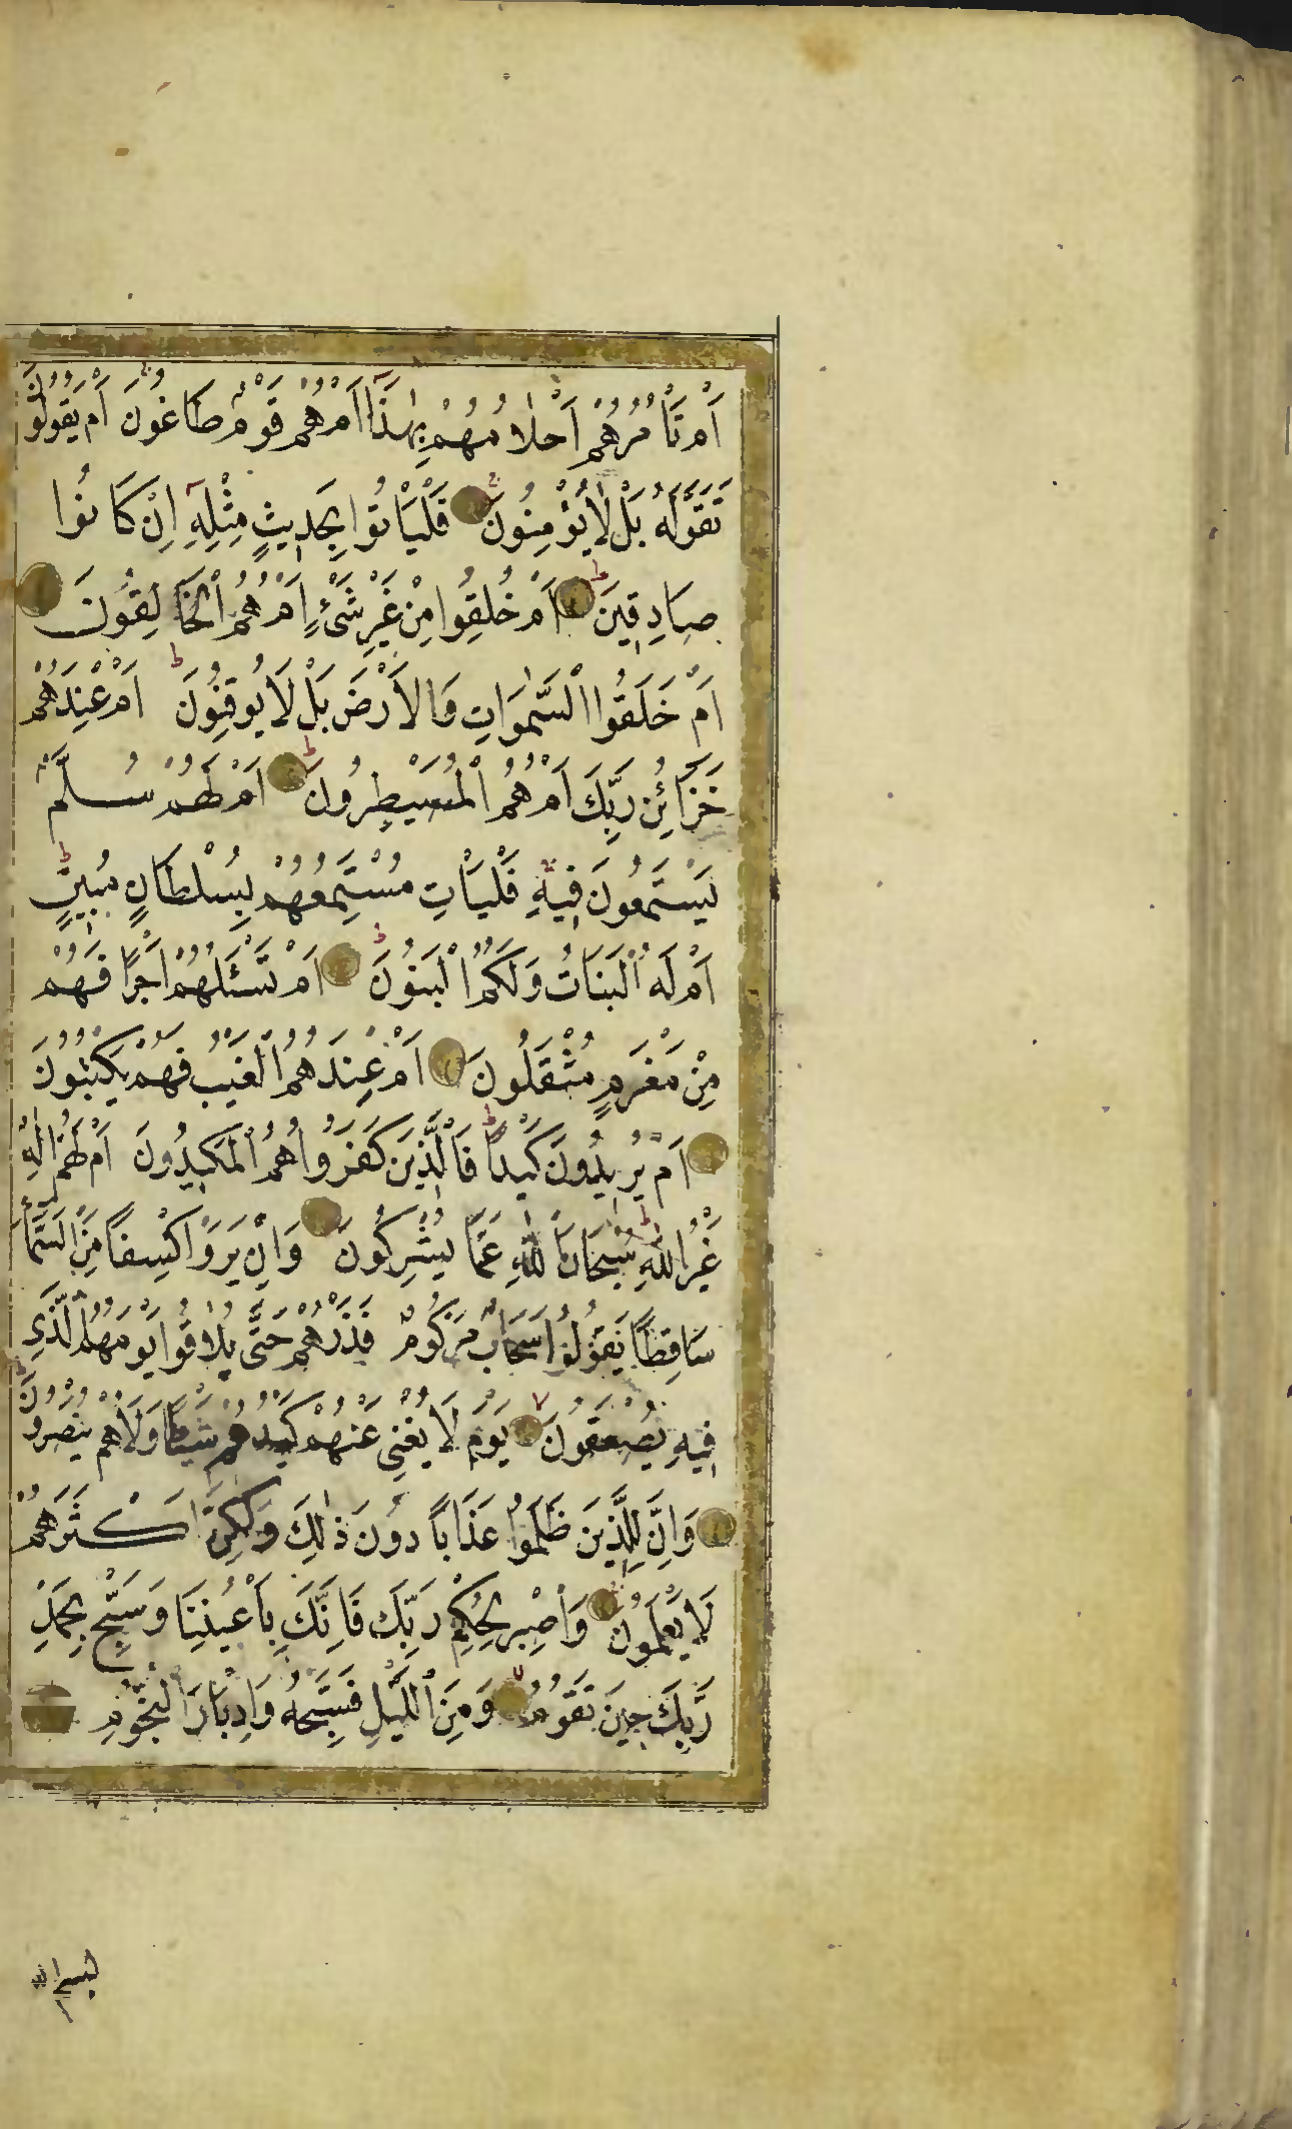 اَمْ تَأْمُرُهُمْ اَحْلَامُهُمْ بِهٰذَٓا اَمْ هُمْ قَوْمٌ طَاغُونَ اَمْ يَقُولُونَ
تَقَوَّلَهُ بَلْ لَا يُؤْمِنُونَ فَلْيَأْتُوا بِحَدِيثٍ مِثْلِهِٓ اِنْ كَانُوا
صَادِقِينَ اَمْ خُلِقُوا مِنْ غَيْرِ شَيْءٍ اَمْ هُمُ الْخَالِقُونَ
اَمْ خَلَقُوا السَّمٰوَاتِ وَالْاَرْضَ بَلْ لَا يُوقِنُونَ اَمْ عِنْدَهُمْ
خَزَٓائِنُ رَبِّكَ اَمْ هُمُ الْمُصَيْطِرُونَ اَمْ لَهُمْ سُلَّمٌ
يَسْتَمِعُونَ فِيهِ فَلْيَأْتِ مُسْتَمِعُهُمْ بِسُلْطَانٍ مُبِينٍ
اَمْ لَهُ الْبَنَاتُ وَلَكُمُ الْبَنُونَ اَمْ تَسْـَٔلُهُمْ اَجْرًا فَهُمْ
مِنْ مَغْرَمٍ مُثْقَلُونَ اَمْ عِنْدَهُمُ الْغَيْبُ فَهُمْ يَكْتُبُونَ
اَمْ يُرِيدُونَ كَيْدًا فَالَّذِينَ كَفَرُوا هُمُ الْمَكِيدُونَ اَمْ لَهُمْ اِلٰهٌ
غَيْرُ اللّٰهِ سُبْحَانَ اللّٰهِ عَمَّا يُشْرِكُونَ وَاِنْ يَرَوْا كِسْفًا مِنَ السَّمَٓاءِ
سَاقِطًا يَقُولُوا سَحَابٌ مَرْكُومٌ فَذَرْهُمْ حَتّٰى يُلَاقُوا يَوْمَهُمُ الَّذِي
فِيهِ يُصْعَقُونَ يَوْمَ لَا يُغْنِي عَنْهُمْ كَيْدُهُمْ شَيْـًٔا وَلَا هُمْ يُنْصَرُونَ
وَاِنَّ لِلَّذِينَ ظَلَمُوا عَذَابًا دُونَ ذٰلِكَ وَلٰكِنَّ اَكْثَرَهُمْ
لَا يَعْلَمُونَ وَاصْبِرْ لِحُكْمِ رَبِّكَ فَاِنَّكَ بِاَعْيُنِنَا وَسَبِّحْ بِحَمْدِ
رَبِّكَ حِينَ تَقُومُ وَمِنَ اللَّيْلِ فَسَبِّحْهُ وَاِدْبَارَ النُّجُومِ
بسم الله